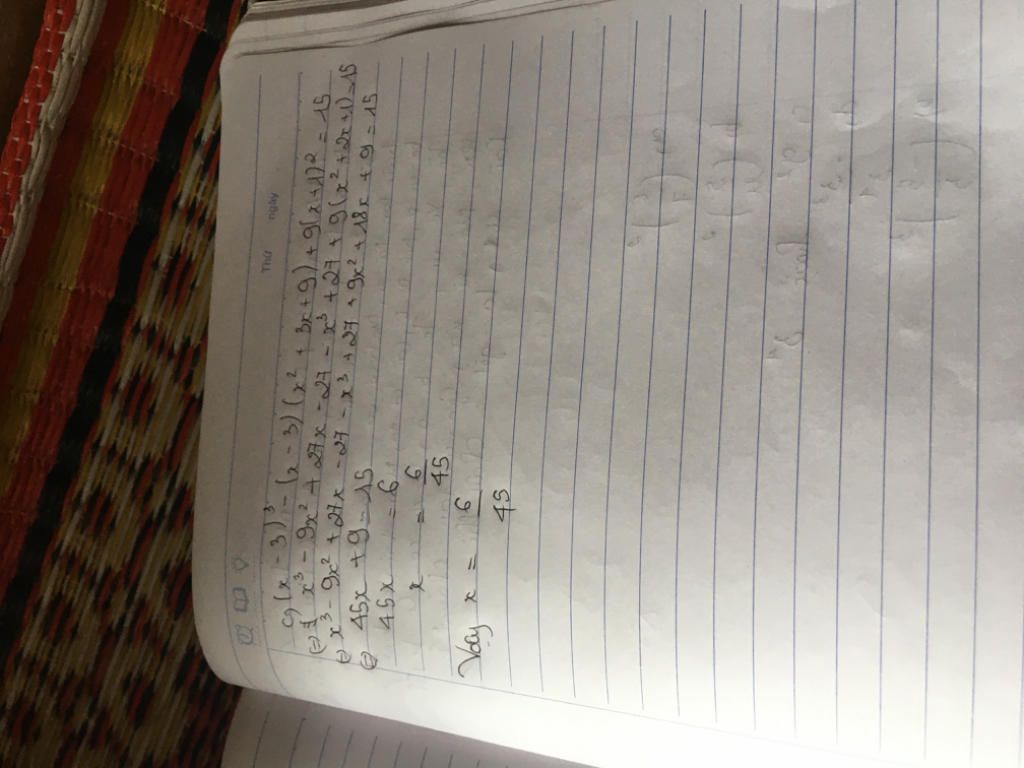 Thứ ngày
g (x - 3)³ - (x - 3)(x² + 3x + 9) + 9(x + 1)² = 15
(=) x³ - 9x² + 27x - 27 - x³ + 27 + 9(x² + 2x + 1) = 15
(=) x³ - 9x² + 27x - 27 - x³ + 27 + 9x² + 18x + 9 = 15
(=) 45x + 9 = 15
45x = 6
x = 6/45
Vậy x = 6/45